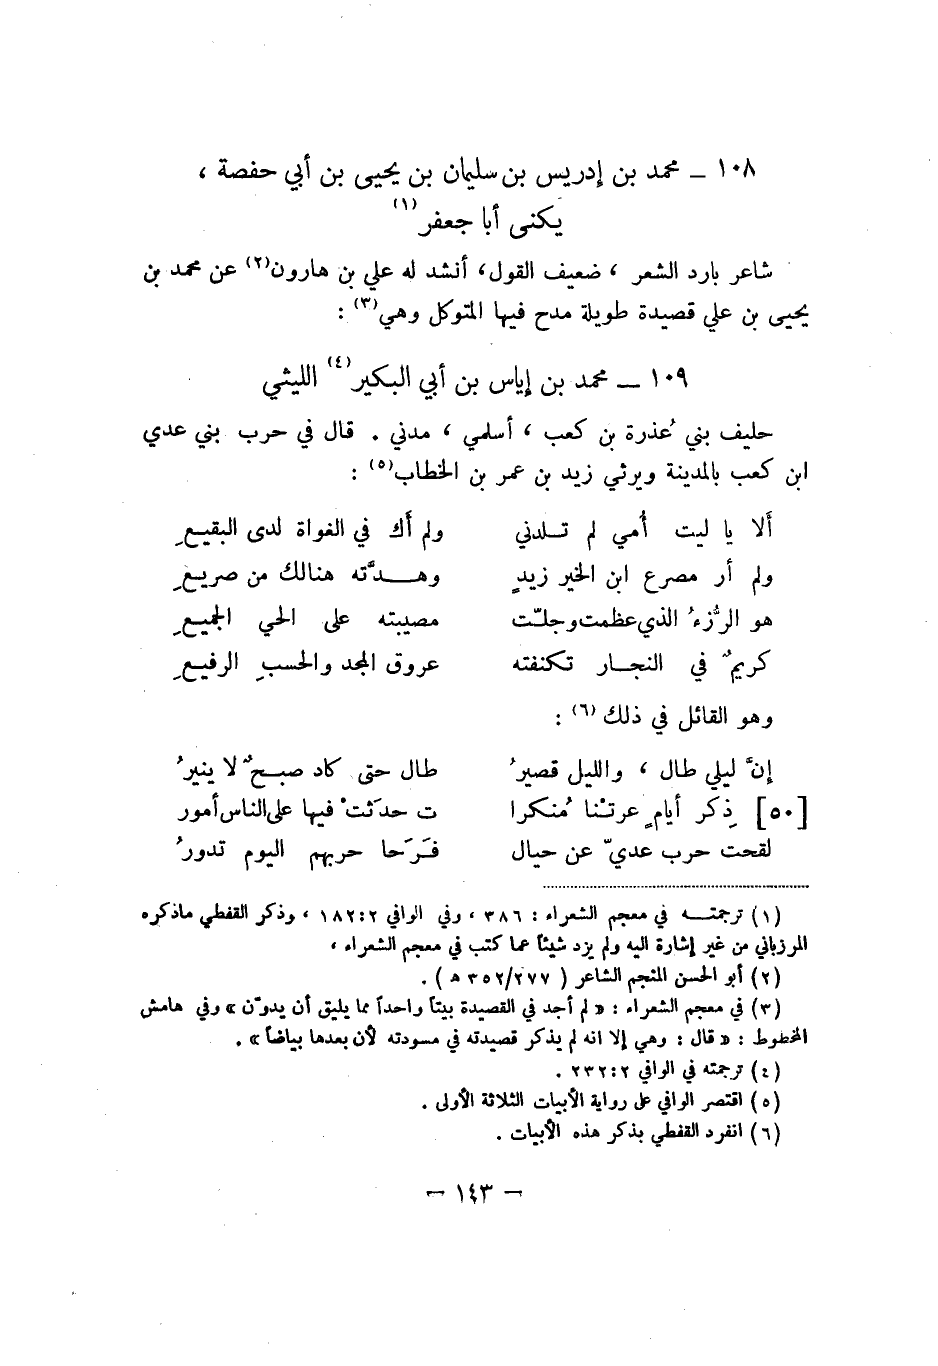 ١٠٨ ــ محمد بن إدريس بن سليمان بن يحيى بن أبي حفصة ،
يكنى أبا جعفر(١)
شاعر بارد الشعر ، ضعيف القول، أنشد له علي بن هارون(٢) عن محمد بن
يحيى بن علي قصيدة طويلة مدح فيها المتوكل وهي(٣) :
١٠٩ ــ محمد بن إياس بن أبي البكير(٤) الليثي
حليف بني عُذرة بن كعب ، أسلمي ، مدني . قال في حرب بني عدي
ابن كعب بالمدينة ويرثي زيد بن عمر بن الخطاب(٥) :
ألا يا ليت أمي لم تلدني ولم أك في الغواة لدى البقيعِ
ولم أر مصرع ابن الخير زيدٍ وهدَّته هنالك من صريعِ
هو الرُّزءُ الذي عظمت وجلّت مصيبته على الحي الجميعِ
كريمٌ في النجار تكنفته عروق المجد والحسبِ الرفيعِ
وهو القائل في ذلك (٦) :
إنَّ ليلي طال ، والليل قصيرُ طال حتى كاد صبحٌ لا ينيرُ
[٥٠] ذِكر أيامٍ عرتْنا مُنكرا ت حدَثتْ فيها على الناس أمور
لقحت حرب عديّ عن حيال فَرَحا حربهم اليوم تدورُ
(١) ترجمته في معجم الشعراء : ٣٨٦ ، وفي الوافي ١٨٢:٢ ، وذكر القفطي ماذكره
المرزباني من غير إشارة اليه ولم يزد شيئاً عما كتب في معجم الشعراء ،
(٢) أبو الحسن المنجم الشاعر ( ٣٥٢/٢٧٧ هـ ) .
(٣) في معجم الشعراء : « لم أجد في القصيدة بيتاً واحداً مما يليق أن يدوّن » وفي هامش
المخطوط : « قال : وهي إلا انه لم يذكر قصيدته في مسودته لأن بعدها بياضاً » .
(٤) ترجمته في الوافي ٢٣٢:٢ .
(٥) اقتصر الوافي على رواية الأبيات الثلاثة الأولى .
(٦) انفرد القفطي بذكر هذه الأبيات .
– ١٤٣ –